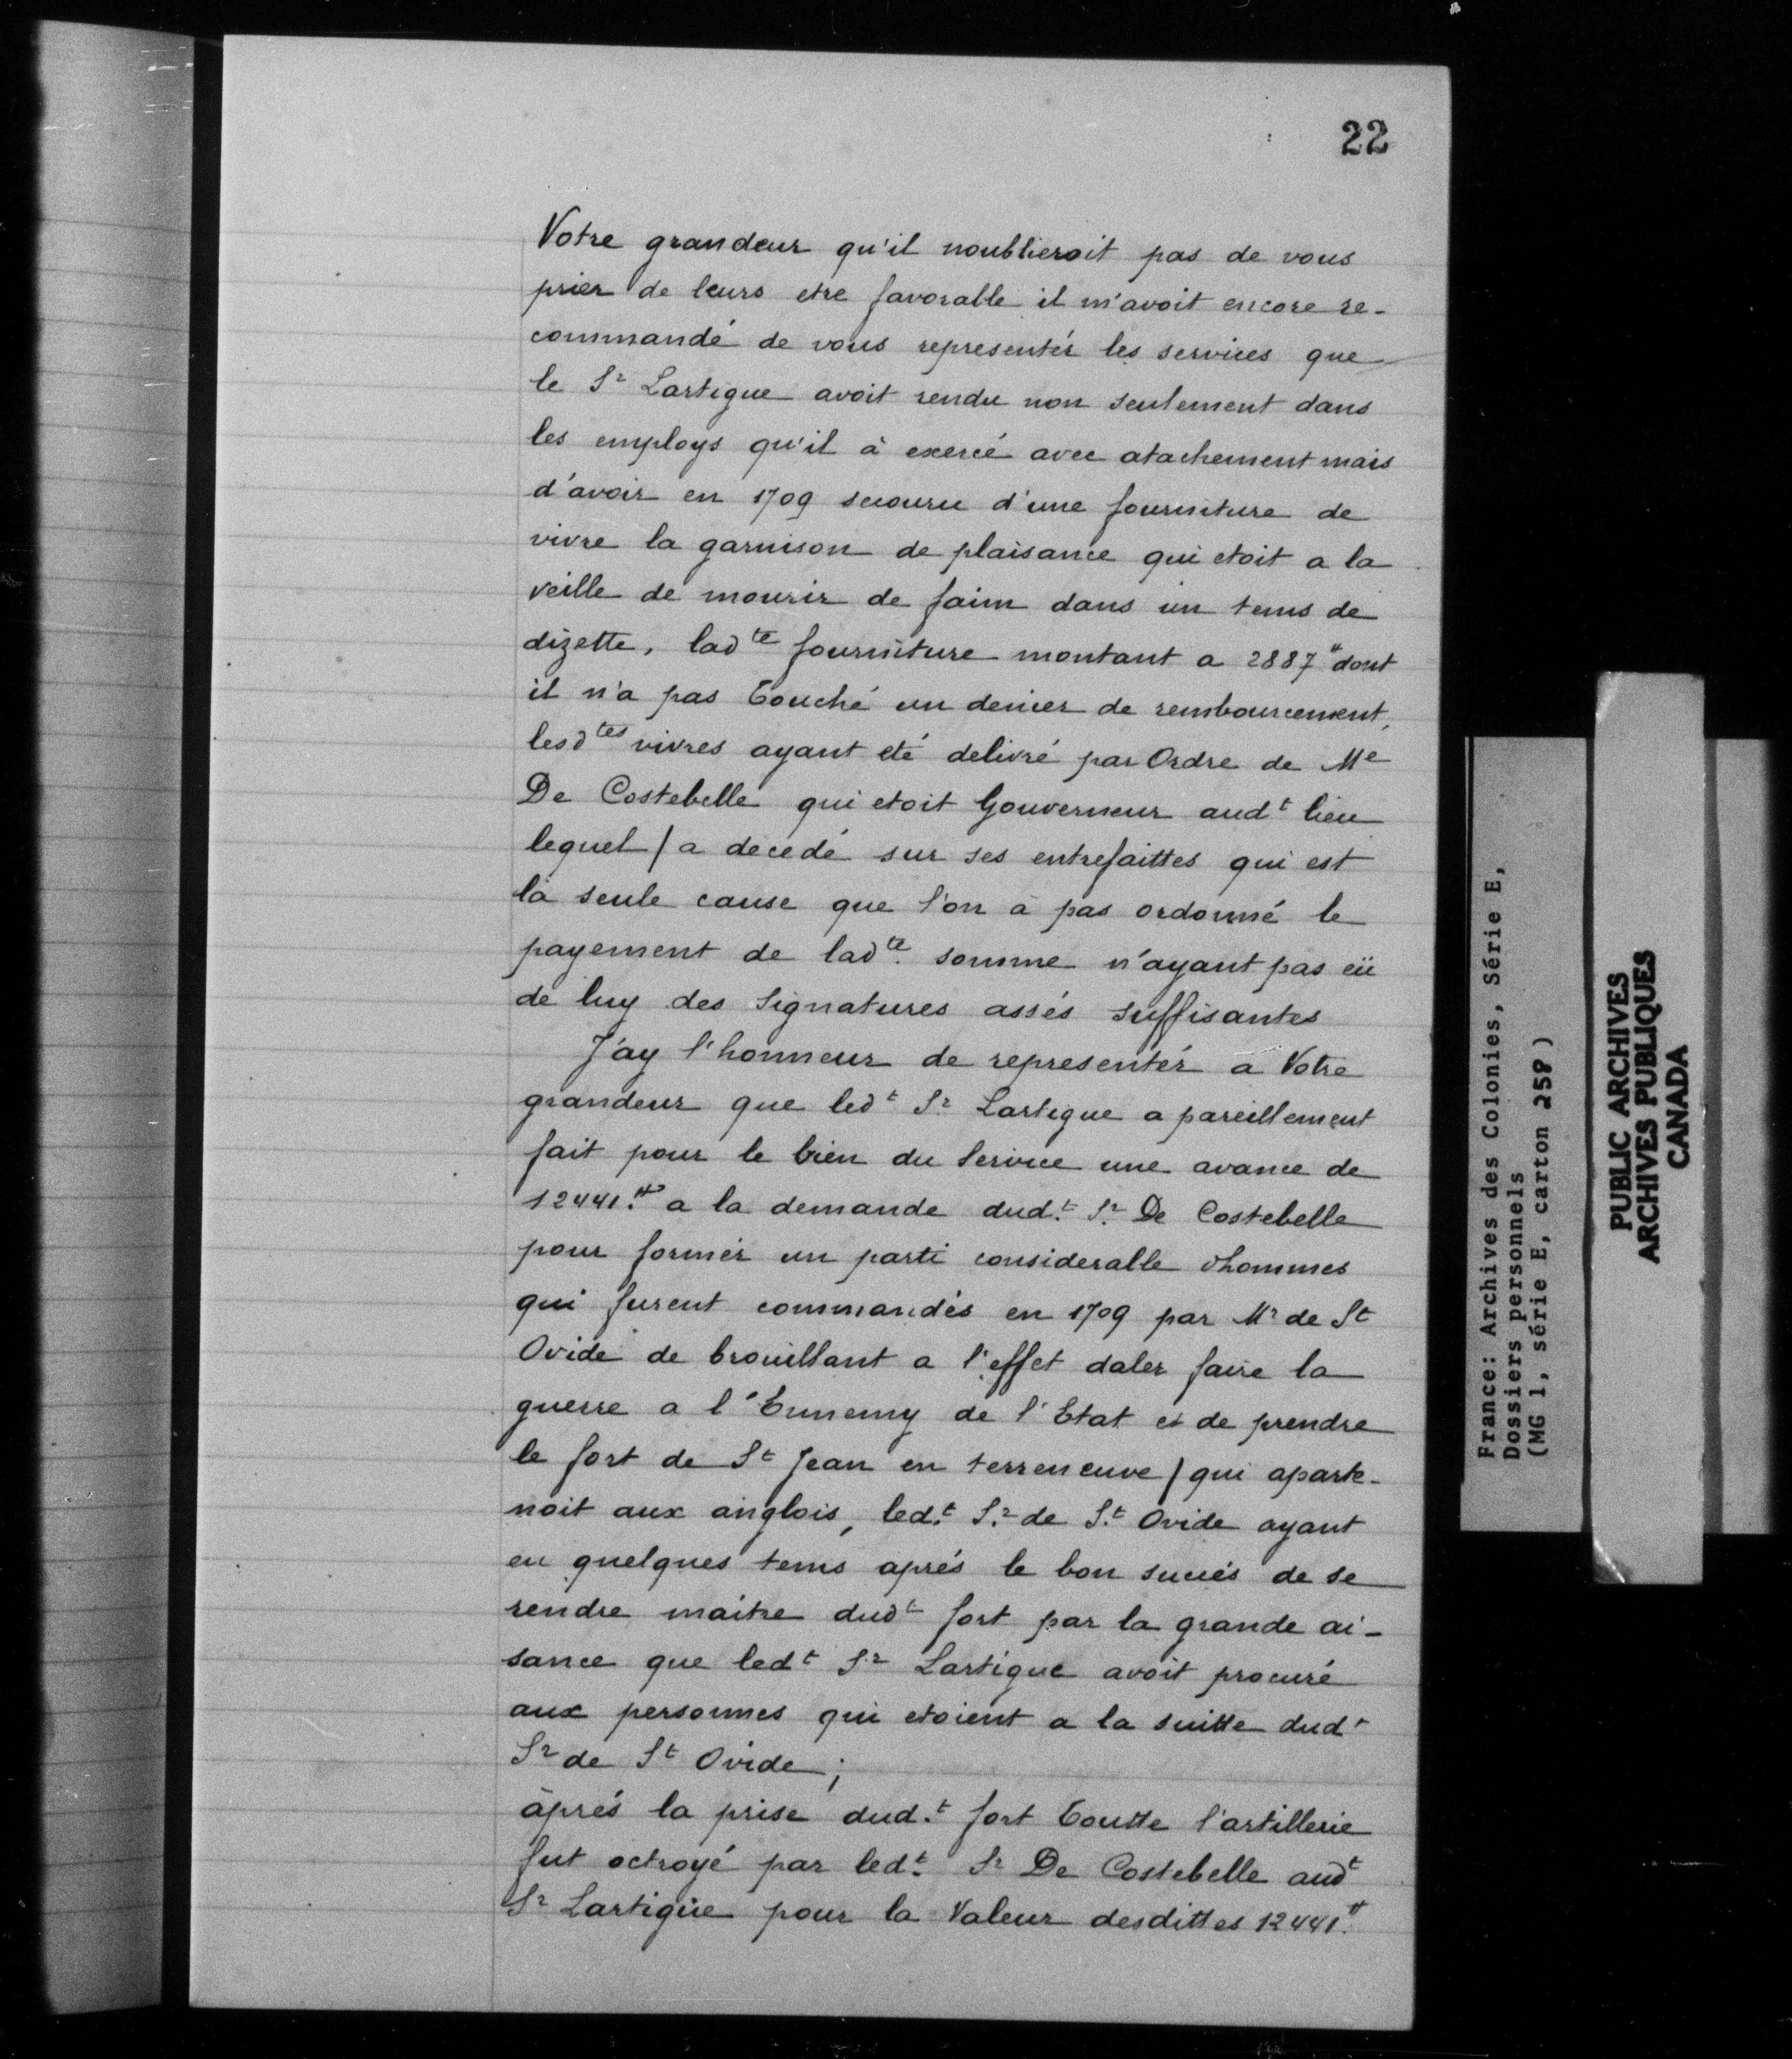 22
Votre grandeur qu'il noublieroit pas de vous
prier de leurs etre favorable il m'avoit encore re-
commandé de vous representér les services que
le Sr Lartigue avoit rendu non seulement dans
les employs qu'il à exercé avec atachement mais
d'avoir en 1709 secouru d'une fourniture de
vivre la garnison de plaisance qui etoit a la
veille de mourir de faim dans un tems de
dizette, ladte fourniture montant a 2887# dont
il n'a pas touché un denier de rembourcement,
lesdtes vivres ayant eté delivré par Ordre de Me
De Costebelle qui etoit Gouverneur audt lieu
lequel / a decedé sur ses entrefaittes qui est
la seule cause que l'on à pas ordonné le
payement de ladte. somme n'ayant pas eü
de luy des Signatures assés suffisantes
J'ay l'honneur de representér a Votre
grandeur que ledt Sr Lartigue a pareillement
fait pour le bien du Service une avance de
12441.# a la demande dud.t Sr. De Costebelle
pour formér un parti considerable dhommes
qui furent commandés en 1709 par Mr de St
Ovide de brouillant a l'effet daler faire la
guerre a l'Ennemy de l'Etat et de prendre
le fort de St Jean en terreneuve / qui aparte-
noit aux anglois, led.t S.r de S.t Ovide ayant
eu quelques tems aprés le bon succés de se
rendre maitre dudt fort par la grande ai-
sance que ledt Sr Lartigue avoit procuré
aux personnes qui etoient a la suitte dudt
Sr de St Ovide;
àprés la prise dud.t fort toutte l'artillerie
fut octroyé par led.t Sr De Costebelle audt
Sr Lartigue pour la Valeur desdittes 12441.#
France: Archives des Colonies, Série E,
Dossiers personnels
(MG 1, série E, carton 258)
PUBLIC ARCHIVES
ARCHIVES PUBLIQUES
CANADA